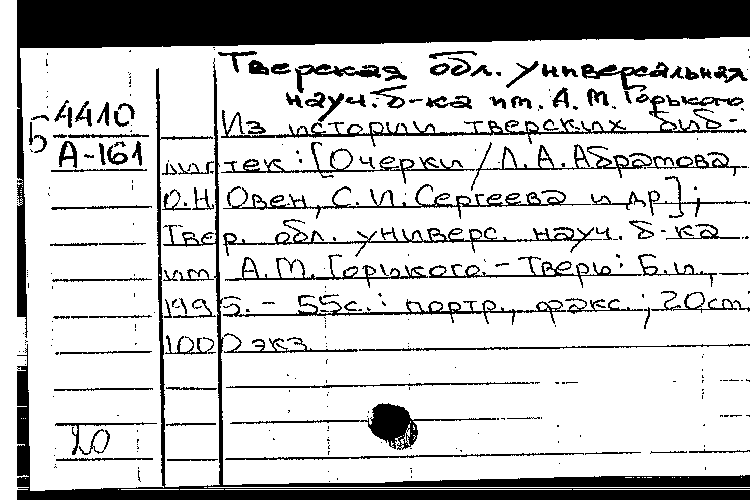 Тверская обл. универсальная
науч. б-ка им. А.М. Горького
5 4410
А-161
Из истории тверских биб-
лиотек: [Очерки / Л.А. Абрамова,
О.Н. Овен, С.И. Сергеева и др.];
Твер. обл. универс. науч. б-ка
им. А.М. Горького. - Тверь: Б.и.,
1995. - 55с.: портр., факс.; 20см.
1000 экз.
20